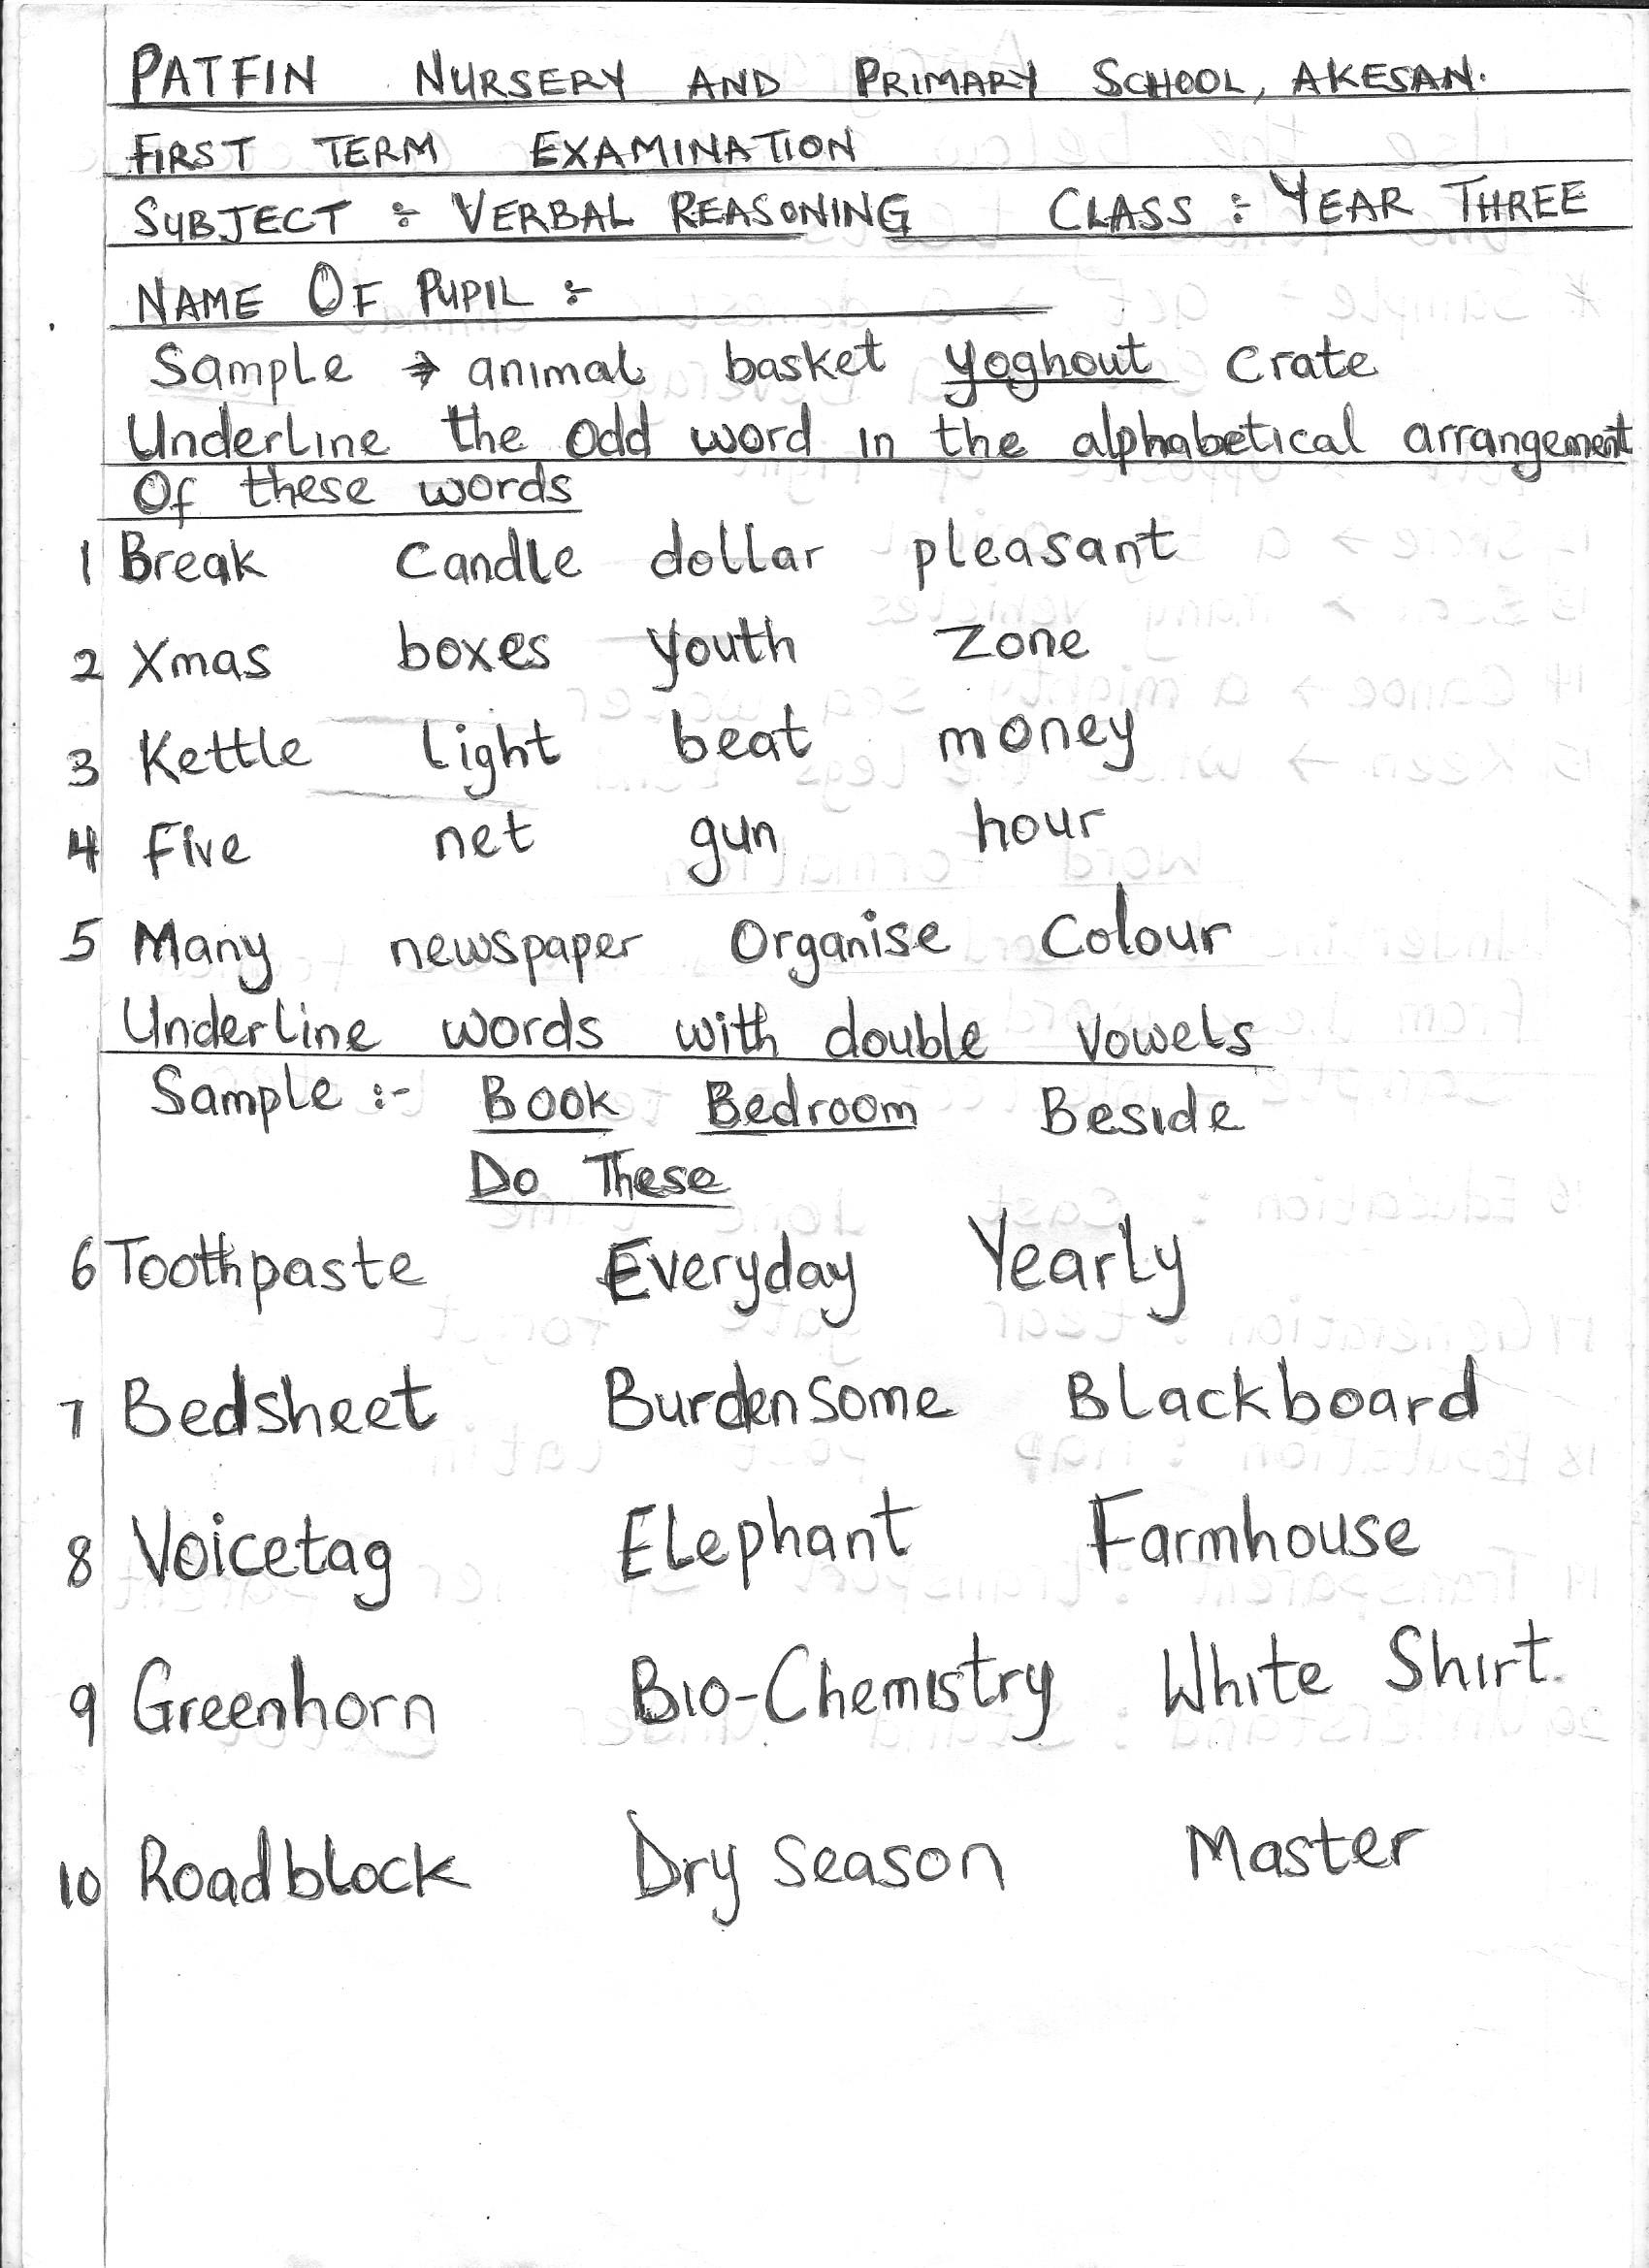 PATFIN NURSERY AND PRIMARY SCHOOL, AKESAN.
FIRST TERM EXAMINATION
SUBJECT :- VERBAL REASONING CLASS :- YEAR THREE
NAME OF PUPIL :-
Sample → animal basket yoghout crate
Underline the odd word in the alphabetical arrangement
Of these words
1 Break candle dollar pleasant
2 Xmas boxes youth zone
3 Kettle light beat money
4 Five net gun hour
5 Many newspaper Organise Colour
Underline words with double vowels
Sample :- Book Bedroom Beside
Do These
6 Toothpaste Everyday Yearly
7 Bedsheet Burdensome Blackboard
8 Voicetag Elephant Farmhouse
9 Greenhorn Bio-Chemistry White Shirt.
10 Roadblock Dry season Master